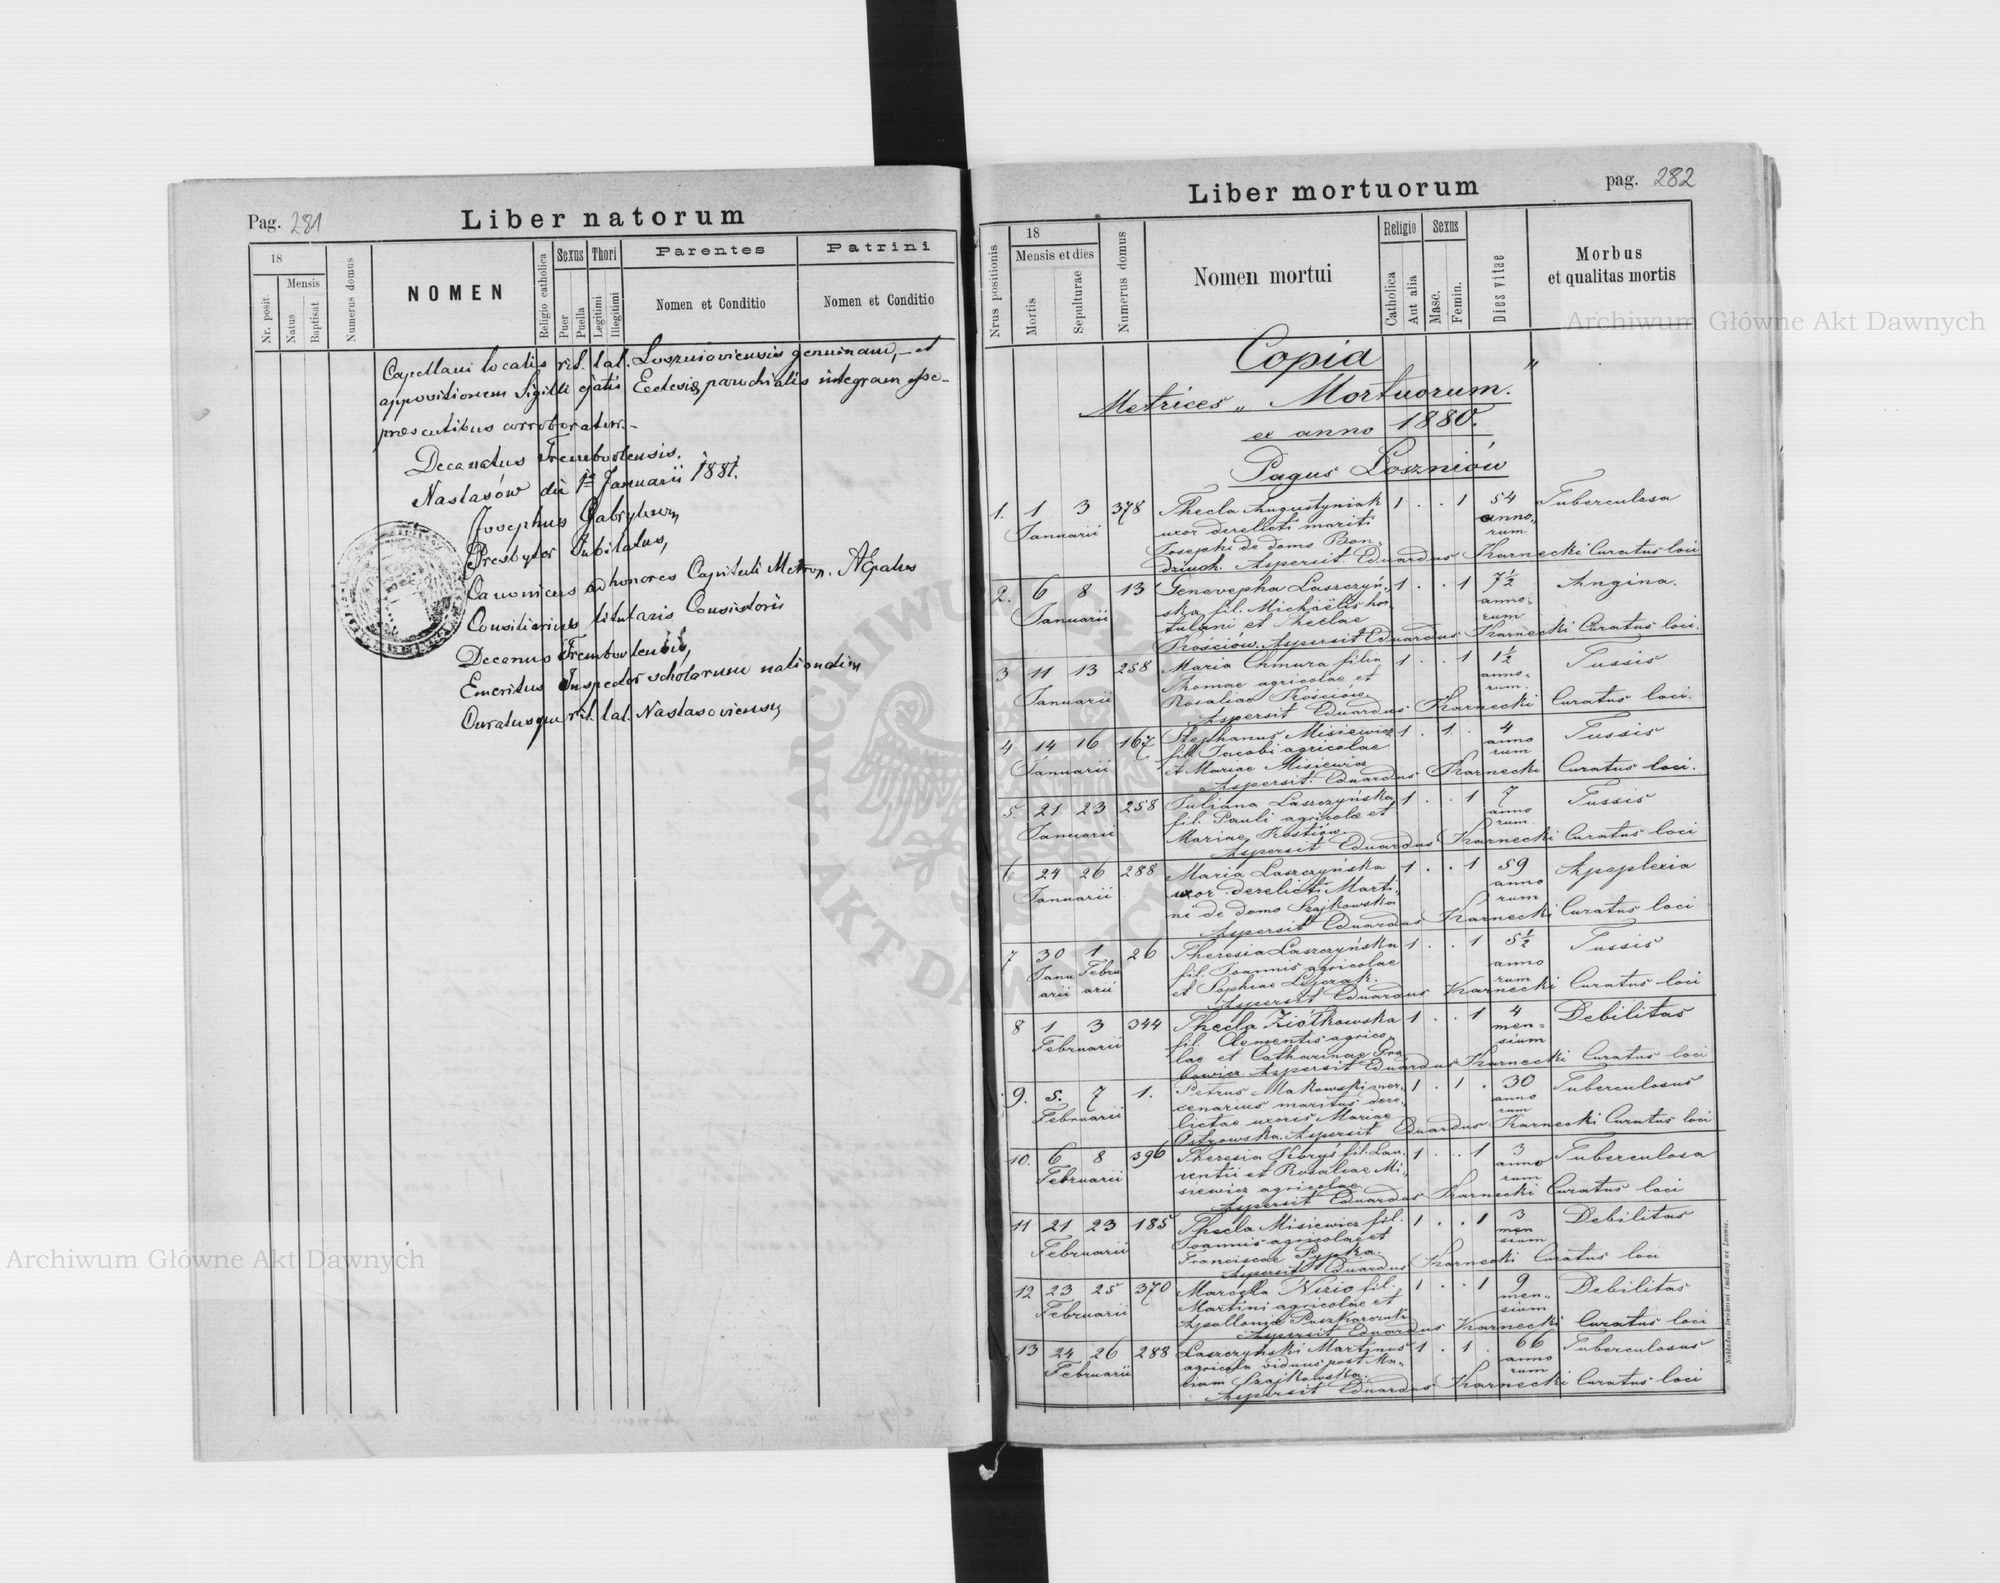 Pag. 281
Liber natorum
18
Mensis
Nr. posit.
Natus
Baptisat
Numerus domus
NOMEN
Religio catholica
Sexus
Puer
Puella
Thori
Legitimi
Illegitimi
Parentes
Nomen et Conditio
Patrini
Nomen et Conditio
Capellani localis rit. lat. Losznioviensis genuinam, et
appositionem Sigilli ejatis Ecclesiæ parochialis integram esse
præsentibus corroboratur.
Decanatus Trembovlensis.
Nastasów die 1ª Januarii 1881.
Josephus
Presbyter Jubilatus,
Canonicus ad honores Capituli Metrop.
Consiliarius titularis Consistorii
Decanus Trembovlensis,
Emeritus Inspector scholarum nationalium
Curatusque rit. lat. Nastasoviensis
pag. 282
Liber mortuorum
Nrus positionis
18
Mensis et dies
Mortis
Sepulturae
Numerus domus
Nomen mortui
Religio
Catholica
Aut alia
Sexus
Masc.
Femin.
Dies vitae
Morbus
et qualitas mortis
Copia "
Metrices „ Mortuorum.
ex anno 1880.
Pagus Loszniów
1. 1 3 378 Thecla Augustyniak 1 . . 1 54 Tuberculosa
Januarii uxor derelicti mariti anno-
Josephi de domo Bon- rum
dziuch. Aspersit Eduardus Karnecki Curatus loci
2. 6 8 13 Genovepha Laszczyń- 1 . . 1 7½ Angina.
Januarii ska fil. Michaëlis hor- anno-
tulani et Theclae rum
Kościów. Aspersit Eduardus Karnecki Curatus loci.
3 11 13 258 Maria Chmura filia 1 . . 1 1½ Tussis
Januarii Thomae agricolae et anno-
Rosaliae Kościów. rum.
Aspersit Eduardus Karnecki Curatus loci.
4 14 16 167 Stephanus Misiewicz 1 . 1 . 4 Tussis
Januarii fil. Jacobi agricolae anno
et Mariae Misiewicz rum
Aspersit Eduardus Karnecki Curatus loci.
5. 21 23 258 Juliana Laszczyńska 1 . . 1 7 Tussis
Januarii fil. Pauli agricolæ et anno
Mariae Kostiów. rum.
Aspersit Eduardus Karnecki Curatus loci
6 24 26 288 Maria Laszczyńska 1 . . 1 59 Apoplexia
Januarii uxor derelicti Marti- anno
ni de domo Szajkowska rum
Aspersit Eduardus Karnecki Curatus loci
7 30 1 26 Theresia Laszczyńska 1 . . 1 5½ Tussis
Janu Febru fil. Joannis agricolae anno
arii arii et Sophiae Lejczak. rum
Aspersit Eduardus Karnecki Curatus loci
8 1 3 344 Thecla Ziółkowska 1 . . 1 4 Debilitas
Februarii fil. Clementis agrico- men-
lae et Catharinae Gra- sium
bowicz. Aspersit Eduardus Karnecki Curatus loci
9. 5. 7 1. Petrus Makowski mer- 1 . 1 . 30 Tuberculosus
Februarii cenarius maritus dere- anno
lictae uxoris Mariae rum
Ostrowska. Aspersit Eduardus Karnecki Curatus loci
10. 6 8 396 Theresia Kobryś fil. Lau- 1 . . 1 3 Tuberculosa
Februarii rentii et Rosaliae Mi- anno
siewicz agricolae. rum
Aspersit Eduardus Karnecki Curatus loci
11 21 23 185 Thecla Misiewicz fil. 1 . . 1 3 Debilitas
Februarii Joannis agricolae et men
Franciscae Pypka. sium
Aspersit Eduardus Karnecki Curatus loci
12 23 25 370 Marcella Nizio fil. 1 . . 1 9 Debilitas
Februarii Martini agricolae et men-
Apolloniæ Puszkarczuk sium
Aspersit Eduardus Karnecki Curatus loci
13 24 26 288 Laszczyński Martinus 1 . 1 . 66 Tuberculosus
Februarii agricola viduus post Ma- anno
riam Szajkowska. rum
Aspersit Eduardus Karnecki Curatus loci
Archiwum Główne Akt Dawnych
Archiwum Główne Akt Dawnych